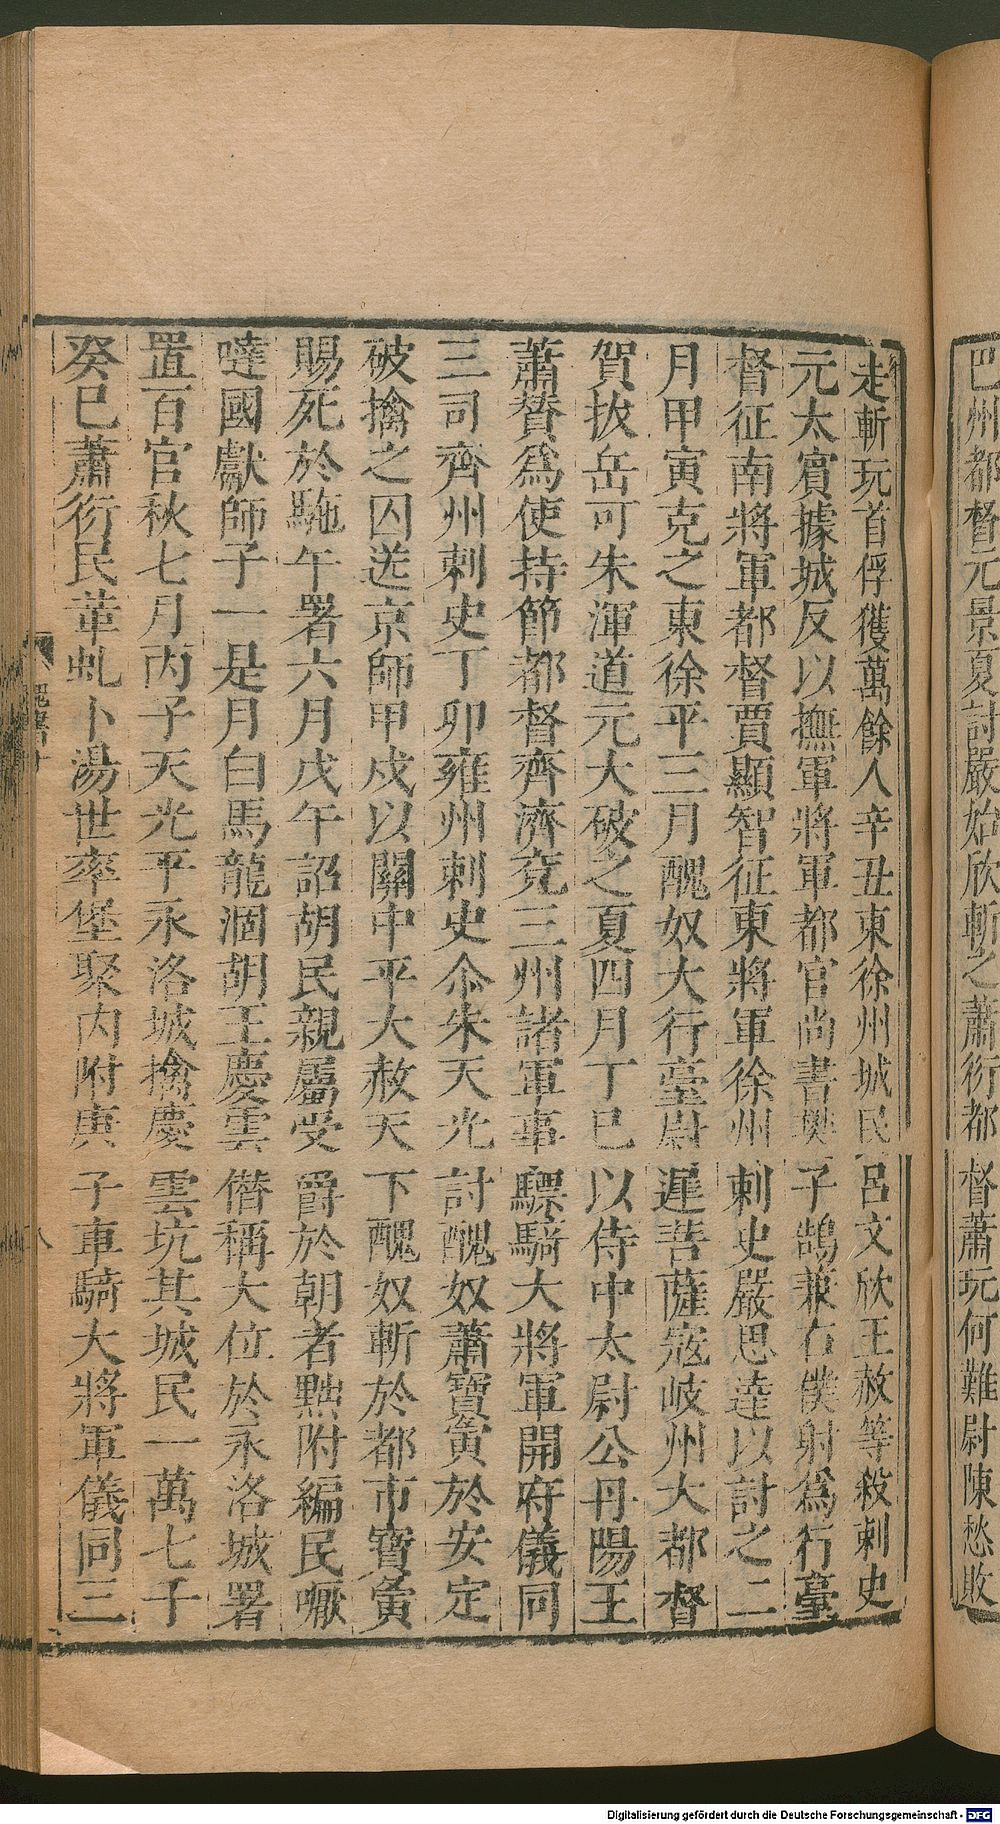 巴州都督元景夏討嚴始欣斬之蕭衍都督蕭玩何難尉陳愁敗
走斬玩首俘獲萬餘人辛丑東徐州城民呂文欣王赦等殺刺史
元太賓據城反以撫軍將軍都官尚書樊子鵠兼右僕射爲行臺
督征南將軍都督賈顯智征東將軍徐州刺史嚴思達以討之二
月甲寅克之東徐平三月醜奴大行臺尉遲菩薩寇岐州大都督
賀拔岳可朱渾道元大破之夏四月丁巳以侍中太尉公丹陽王
蕭贊爲使持節都督齊濟兗三州諸軍事驃騎大將軍開府儀同
三司齊州刺史丁卯雍州刺史尒朱天光討醜奴蕭寶夤於安定
破擒之囚送京師甲戌以關中平大赦天下醜奴斬於都市寶夤
賜死於駞午署六月戊午詔胡民親屬受爵於朝者黜附編民嚈
噠國獻師子一是月白馬龍涸胡王慶雲僭稱大位於永洛城署
置百官秋七月丙子天光平永洛城擒慶雲坑其城民一萬七千
癸巳蕭衍民革虬卜湯世率堡聚內附庚子車騎大將軍儀同三
魏書十
八
Digitalisierung gefördert durch die Deutsche Forschungsgemeinschaft - DFG